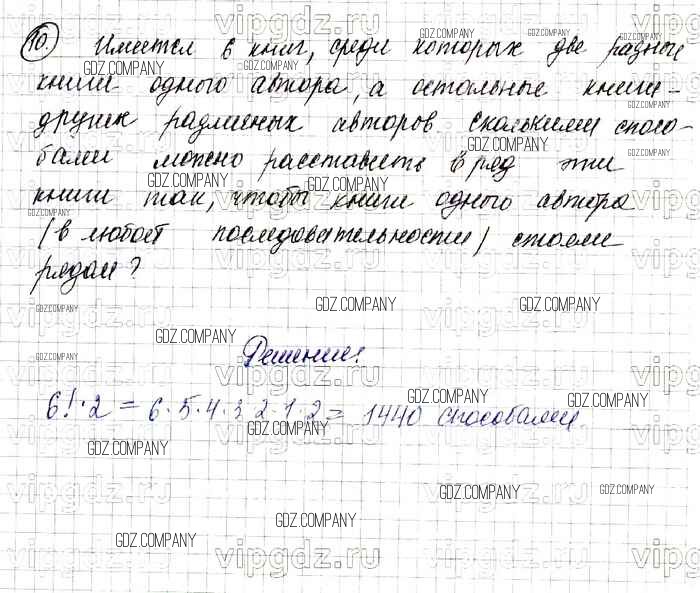 10. Имеется 6 книг, среди которых две разные
книги одного автора, а остальные книги -
других различных авторов. Сколькими спосо-
бами можно расставить в ряд эти
книги так, чтобы книги одного автора
(в любой последовательности) стояли
рядом?
Решение:
6! · 2 = 6 · 5 · 4 · 3 · 2 · 1 · 2 = 1440 способами
GDZ.COMPANY
vipgdz.ru